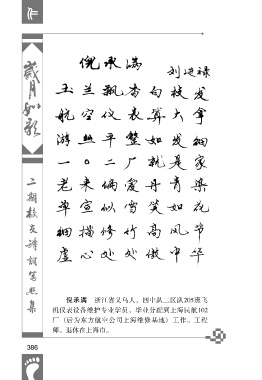 作
岁月如歌
二期校友诗词书画集
倪承满
刘进禄
玉兰飘香向校发
航空仪表算大拿
游丝平整如发细
一〇二厂就是家
老来偏爱丹青染
草宣似雪笑如花
细描修竹高风节
虚心处处傲中华
倪承满 浙江省义乌人，四中队二区队205班飞
机仪表设备维护专业学员，毕业分配到上海民航102
厂（后为东方航空公司上海维修基地）工作。工程
师。退休在上海市。
386